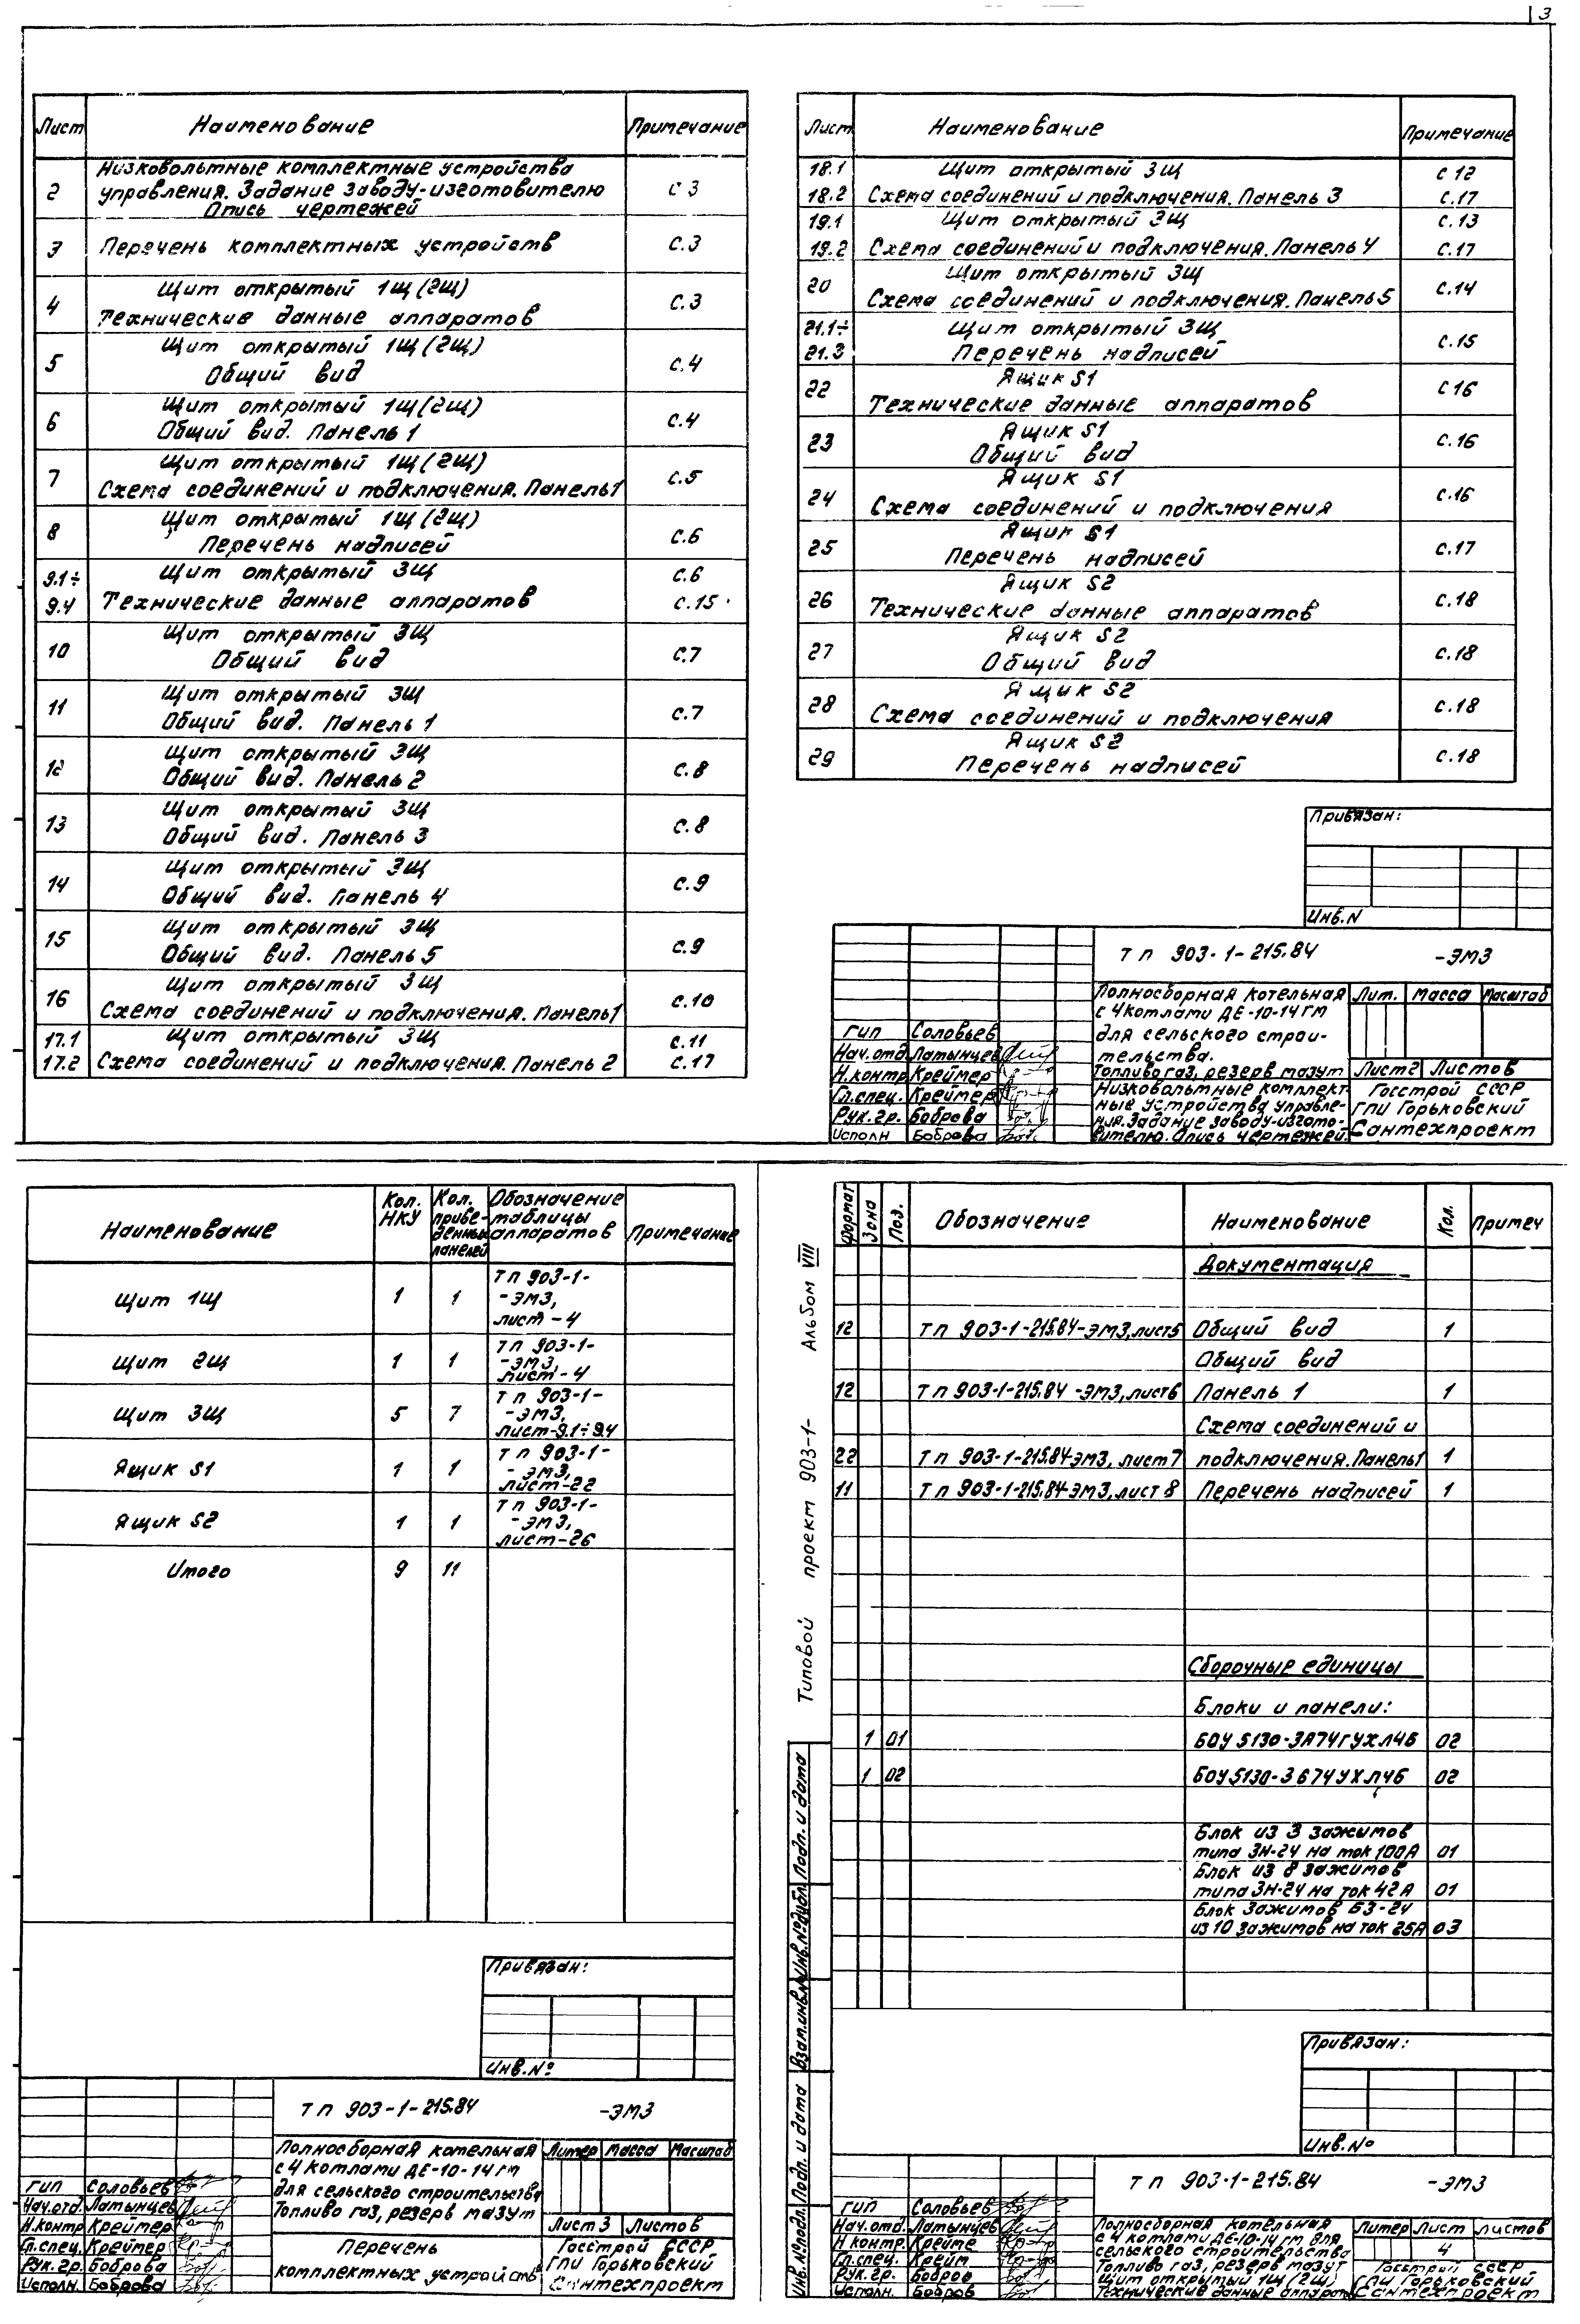 3
Лист Наименование Примечание
2 Низковольтные комплектные устройства
управления. Задание заводу-изготовителю с 3
Опись чертежей
3 Перечень комплектных устройств с.3
4 Щит открытый 1Щ (2Щ)
Технические данные аппаратов с.3
5 Щит открытый 1Щ (2Щ)
Общий вид с.4
6 Щит открытый 1Щ (2Щ)
Общий вид. Панель 1 с.4
7 Щит открытый 1Щ (2Щ)
Схема соединений и подключения. Панель 1 с.5
8 Щит открытый 1Щ (2Щ)
Перечень надписей с.6
9.1÷ Щит открытый 3Щ с.6
9.4 Технические данные аппаратов с.15
10 Щит открытый 3Щ
Общий вид с.7
11 Щит открытый 3Щ
Общий вид. Панель 1 с.7
12 Щит открытый 3Щ
Общий вид. Панель 2 с.8
13 Щит открытый 3Щ
Общий вид. Панель 3 с.8
14 Щит открытый 3Щ
Общий вид. Панель 4 с.9
15 Щит открытый 3Щ
Общий вид. Панель 5 с.9
16 Щит открытый 3Щ
Схема соединений и подключения. Панель 1 с.10
17.1 Щит открытый 3Щ с.11
17.2 Схема соединений и подключения. Панель 2 с.17
Лист Наименование Примечание
18.1 Щит открытый 3Щ с 12
18.2 Схема соединений и подключения. Панель 3 с.17
19.1 Щит открытый 3Щ с.13
19.2 Схема соединений и подключения. Панель 4 с.17
20 Щит открытый 3Щ
Схема соединений и подключения. Панель 5 с.14
21.1÷ Щит открытый 3Щ
21.3 Перечень надписей с.15
22 Ящик S1
Технические данные аппаратов с 16
23 Ящик S1
Общий вид с.16
24 Ящик S1
Схема соединений и подключения с.16
25 Ящик S1
Перечень надписей с.17
26 Ящик S2
Технические данные аппаратов с.18
27 Ящик S2
Общий вид с.18
28 Ящик S2
Схема соединений и подключения с.18
29 Ящик S2
Перечень надписей с.18
Привязан:
Инв.N
ТП 903-1-215.84 -ЭМ3
Полносборная котельная
с 4 котлами ДЕ-10-14ГМ
для сельского строи-
тельства.
Топливо газ, резерв мазут
Лит. Масса Масштаб
Лист 2 Листов
ГИП Соловьев
Нач.отд. Латынцев
Н.контр Креймер
Гл.спец. Креймер
Рук.гр. Боброва
Исполн Боброва
Низковольтные комплект-
ные устройства управле-
ния. Задание заводу-изгото-
вителю. Опись чертежей.
Госстрой СССР
ГПИ Горьковский
Сантехпроект
Наименование Кол. НКУ Кол. приве-денных панелей Обозначение таблицы аппаратов Примечание
Щит 1Щ 1 1 ТП 903-1-
-ЭМ3,
лист-4
Щит 2Щ 1 1 ТП 903-1-
-ЭМ3,
лист-4
Щит 3Щ 5 7 ТП 903-1-
-ЭМ3,
лист-9.1÷9.4
Ящик S1 1 1 ТП 903-1-
-ЭМ3,
лист-22
Ящик S2 1 1 ТП 903-1-
-ЭМ3,
лист-26
Итого 9 11
Привязан:
Инв.№
ТП 903-1-215.84 -ЭМ3
Полносборная котельная
с 4 котлами ДЕ-10-14ГМ
для сельского строительства
Топливо газ, резерв мазут
Литер Масса Масштаб
Лист 3 Листов
ГИП Соловьев
Нач.отд. Латынцев
Н.контр Креймер
Гл.спец. Креймер
Рук.гр. Боброва
Исполн. Боброва
Перечень
комплектных устройств
Госстрой СССР
ГПИ Горьковский
Сантехпроект
Типовой проект 903-1- Альбом VIII
Формат Зона Поз. Обозначение Наименование Кол. Примеч
Документация
12 ТП 903-1-215.84-ЭМ3, лист 5 Общий вид 1
Общий вид
12 ТП 903-1-215.84 -ЭМ3, лист 6 Панель 1 1
Схема соединений и
22 ТП 903-1-215.84-ЭМ3, лист 7 подключения. Панель 1 1
11 ТП 903-1-215.84-ЭМ3, лист 8 Перечень надписей 1
Сборочные единицы
Блоки и панели:
1 01 БОУ 5130-3А74ГУХЛ4Б 02
1 02 БОУ5130-3674УХЛ4Б 02
Блок из 3 зажимов
типа ЗН-24 на ток 100А 01
Блок из 8 зажимов
типа ЗН-24 на ток 42А 01
Блок зажимов БЗ-24
из 10 зажимов на ток 25А 03
Инв.№подл. Подп. и дата Взам.инв.№ Инв.№дубл. Подп. и дата
Привязан:
Инв.№
ТП 903-1-215.84 -ЭМ3
ГИП Соловьев
Нач.отд. Латынцев
Н контр. Крейме
Гл.спец. Крейм
Рук.гр. Бобров
Исполн. Бобров
Полносборная котельная
с 4 котлами ДЕ-10-14 ГМ для
сельского строительства
Топливо газ, резерв мазут
Щит открытый 1Щ (2Щ)
Технические данные аппарат
Литер Лист Листов
4
Госстрой СССР
ГПИ Горьковский
Сантехпроект